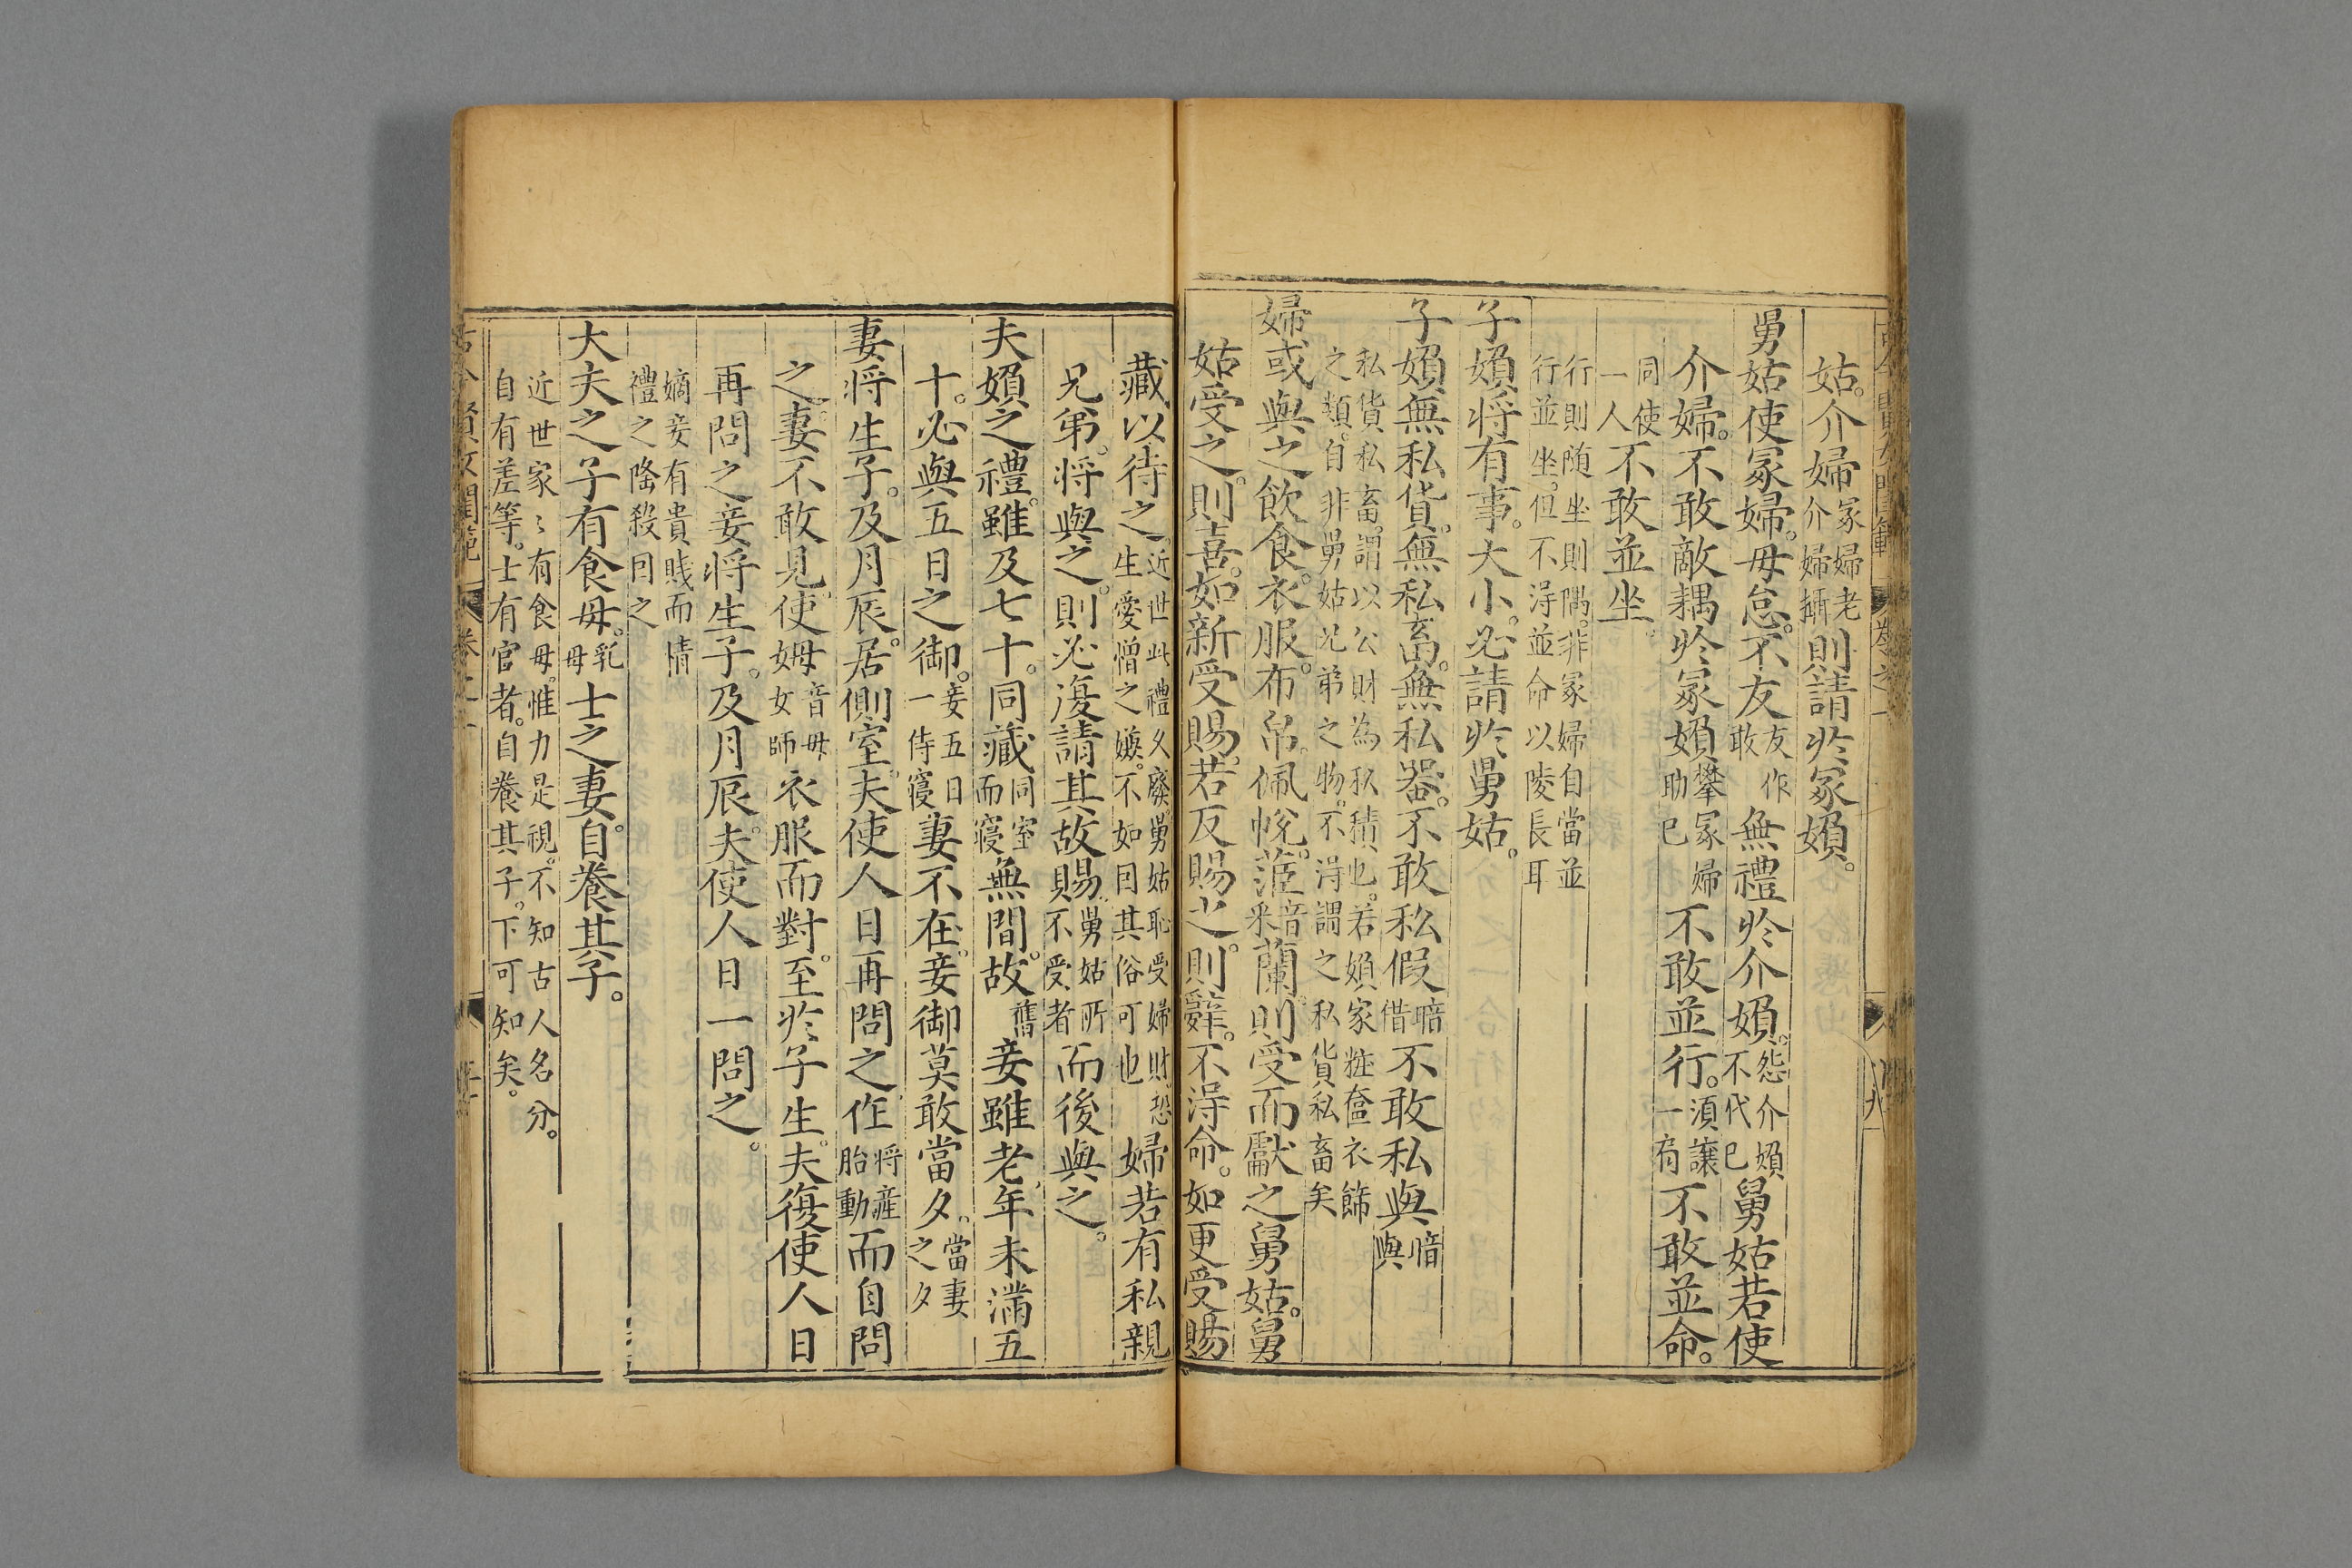 姑。介婦冢婦老介婦攝則請於冢婦。
舅姑使冢婦。毋怠。不友友作敢無禮於介婦。怨介婦不代己舅姑若使
介婦。不敢敵耦於冢婦攀冢婦助己不敢並行。須讓一肩不敢並命。
同使一人不敢並坐。
行則随坐則隅。非冢婦自當並行並坐。但不淂並命以陵長耳
子婦将有事。大小。必請於舅姑。
子婦無私貨。無私畜。無私器。不敢私假暗借不敢私與暗與
私貨私畜。謂以公財為私積也。若婦家粧奩衣餙之類。自非舅姑兄弟之物。不淂謂之私貨私畜矣
婦或與之飲食。衣服。布帛。佩帨。茝音釆蘭。則受而獻之舅姑。舅
姑受之。則喜。如新受賜。若反賜之。則辭。不淂命。如更受賜
藏以待之。近世此禮久廢。舅姑恥受婦財。恐生愛憎之嫌。不如因其俗可也婦若有私親
兄弟。将與之。則必復請其故賜。舅姑所不受者而後與之。
夫婦之禮。雖及七十。同藏同室而寢無間。故舊妾雖老。年未滿五
十。必與五日之御。妾五日一侍寢妻不在。妾御莫敢當夕。當妻之夕
妻将生子。及月辰。居側室。夫使人日再問之。作将産胎動而自問
之。妻不敢見。使姆音母女師衣服而對。至於子生。夫復使人日
再問之妾将生子。及月辰。夫使人日一問之。
嫡妾有貴賤而情禮之隆殺因之
大夫之子有食母。乳母士之妻。自養其子。
近世家〻有食母。惟力是視。不知古人名分。自有差等。士有官者。自養其子。下可知矣。